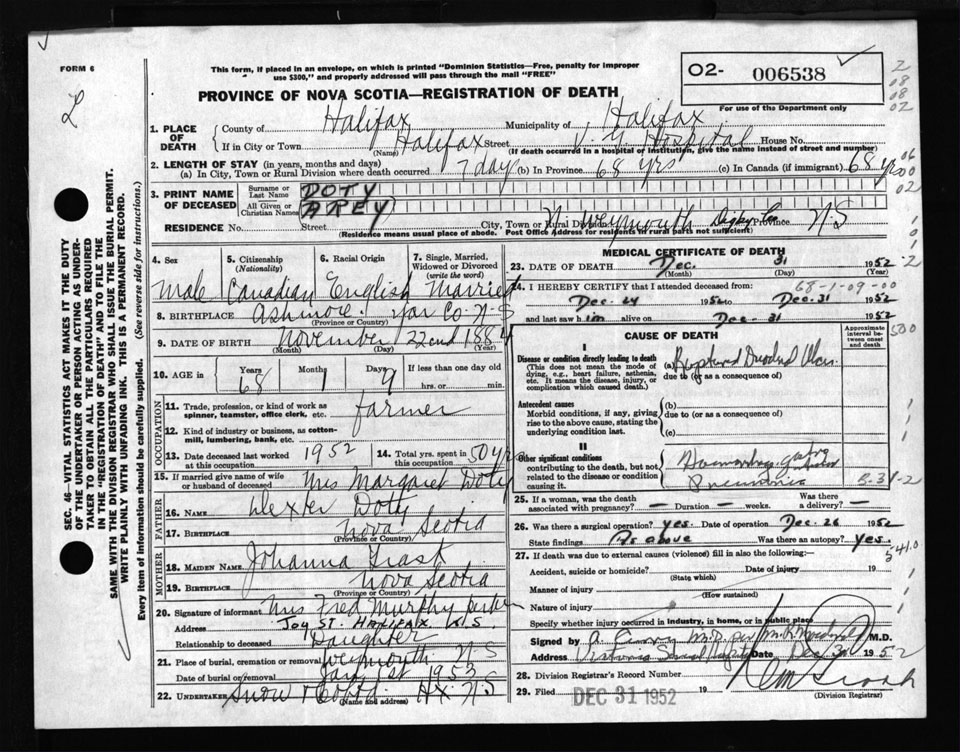 FORM 6
This form, if placed in an envelope, on which is printed "Dominion Statistics—Free, penalty for improper
use $300," and properly addressed will pass through the mail "FREE"
O2- 006538
For use of the Department only
PROVINCE OF NOVA SCOTIA—REGISTRATION OF DEATH
L
2
08
08
02
06
00
02
SEC. 46—VITAL STATISTICS ACT MAKES IT THE DUTY
OF THE UNDERTAKER OR PERSON ACTING AS UNDER-
TAKER TO OBTAIN ALL THE PARTICULARS REQUIRED
IN THE "REGISTRATION OF DEATH" AND TO FILE THE
SAME WITH THE DIVISION REGISTRAR WHO SHALL ISSUE THE BURIAL PERMIT.
WRITE PLAINLY WITH UNFADING INK. THIS IS A PERMANENT RECORD.
Every item of information should be carefully supplied. (See reverse side for instructions.)
1. PLACE OF DEATH
County of Halifax Municipality of Halifax
If in City or Town Halifax Street V. G. Hospital House No.
(Name) (If death occurred in a hospital or institution, give the name instead of street and number)
2. LENGTH OF STAY (in years, months and days)
(a) In City, Town or Rural Division where death occurred 7 days (b) In Province 68 yrs (c) In Canada (if immigrant) 68 yrs
3. PRINT NAME OF DECEASED
Surname or Last Name DOTY
All Given or Christian Names AREY
RESIDENCE No. Street City, Town or Rural Division N. Weymouth Digby Co Province N.S
(Residence means usual place of abode. Post Office Address for residents in rural parts not sufficient)
4. Sex 5. Citizenship (Nationality) 6. Racial Origin 7. Single, Married, Widowed or Divorced (write the word)
Male Canadian English Married
8. BIRTHPLACE Ashmore Yar Co N-S
(Province or Country)
9. DATE OF BIRTH November 22nd 1884
(Month) (Day) (Year)
10. AGE in Years 68 Months 1 Days 9 If less than one day old
hrs. or min.
OCCUPATION
11. Trade, profession, or kind of work as
spinner, teamster, office clerk, etc. farmer
12. Kind of industry or business, as cotton-
mill, lumbering, bank, etc.
13. Date deceased last worked at this occupation 1952 14. Total yrs. spent in this occupation 50 yrs
15. If married give name of wife
or husband of deceased Mrs Margaret Doty
FATHER
16. Name Dexter Doty
17. Birthplace Nova Scotia
(Province or Country)
MOTHER
18. MAIDEN NAME Johanna Trask
19. BIRTHPLACE Nova Scotia
(Province or Country)
20. Signature of informant Mrs Fred Murphy
Address Joy ST. HALIFAX N.S.
Relationship to deceased Daughter
21. Place of burial, cremation or removal Weymouth N-S
Date of burial or removal Jan 1st 1953
22. UNDERTAKER Snow & Co Ltd. Hx. N.S
MEDICAL CERTIFICATE OF DEATH
23. DATE OF DEATH Dec. 31 1952
(Month) (Day) (Year)
68-1-09-00
24. I HEREBY CERTIFY that I attended deceased from:
Dec-24 1952 to Dec-31 1952
and last saw him alive on Dec-31 1952
CAUSE OF DEATH
Approximate interval between onset and death
I
Disease or condition directly leading to death
(This does not mean the mode of
dying, e.g., heart failure, asthenia,
etc. It means the disease, injury, or
complication which caused death.)
(a) Ruptured Duodenal Ulcer
due to (or as a consequence of)
Antecedent causes
Morbid conditions, if any, giving
rise to the above cause, stating the
underlying condition last.
(b)
due to (or as a consequence of)
(c)
II
Other significant conditions
contributing to the death, but not
related to the disease or condition
causing it.
Pneumonia
25. If a woman, was the death
associated with pregnancy? — Duration — weeks. Was there a delivery? —
26. Was there a surgical operation? yes. Date of operation Dec-26 1952
State findings As above Was there an autopsy? yes.
541.0
27. If death was due to external causes (violence) fill in also the following:
Accident, suicide or homicide? Date of injury 19
(State which)
Manner of injury
(How sustained)
Nature of injury
Specify whether injury occurred in industry, in home, or in public place
Signed by M.D.
Address Victoria General Hospital Date Dec 31 1952
28. Division Registrar's Record Number
29. Filed DEC 31 1952 19
(Division Registrar)